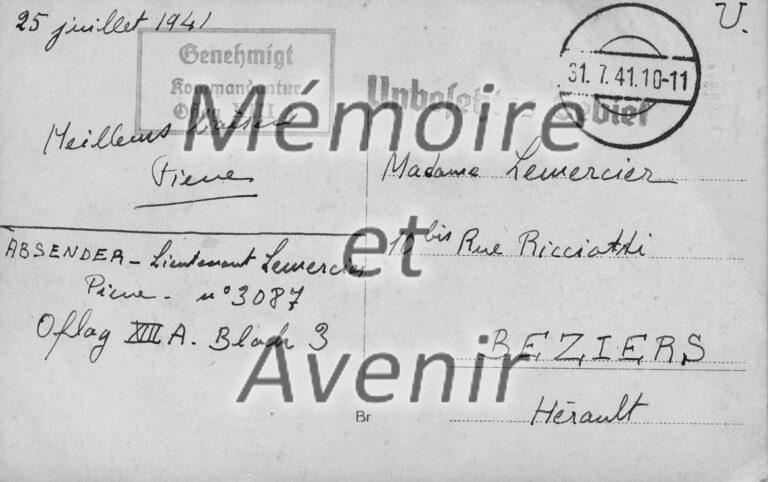 25 juillet 1941
U.
Genehmigt
Kommandantur
31.7.41.10-11
Meilleurs
Pierre
Madame Lemercier
10 bis Rue Ricciotti
BEZIERS
Hérault
ABSENDER - Lieutenant Lemercier
Pierre - n° 3087
Oflag XIII A. Block 3
Br
Mémoire
et
Avenir